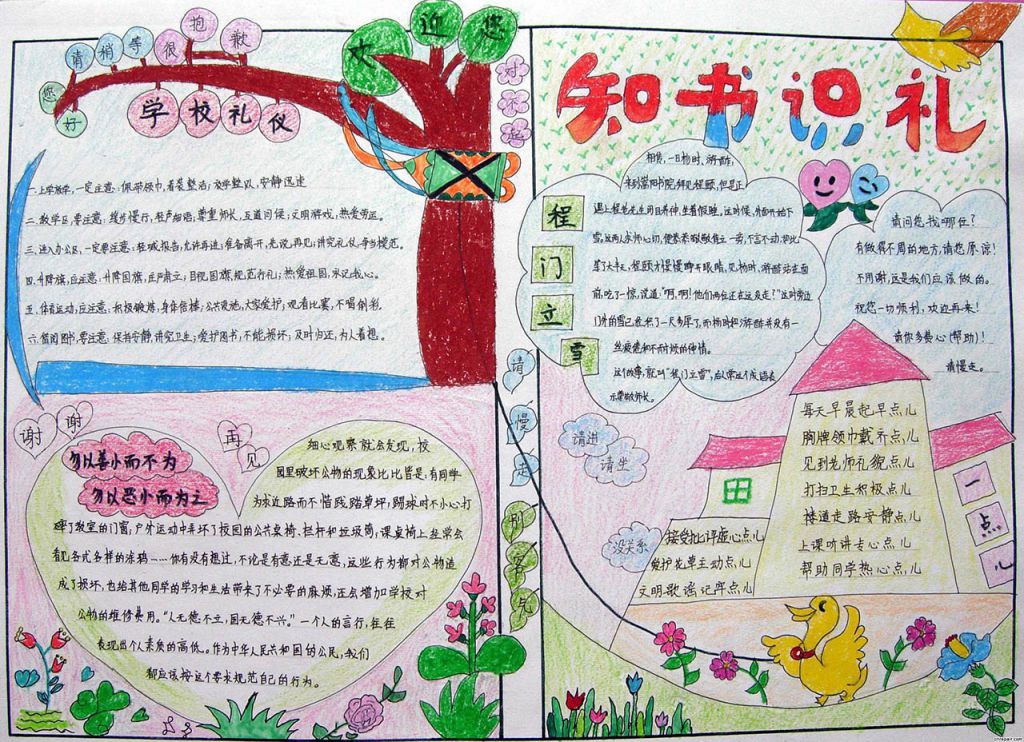 您好
请稍等
很抱歉
欢迎您
对不起
学校礼仪
一.上学放学,一定注意:佩带领巾,着装整洁;放学整队,安静迅速
二.教学区,要注意:缓步慢行,轻声细语;尊重师长,互道问候;文明游戏,热爱劳动。
三.进入办公区,一定要注意:轻喊报告,允许再进;准备离开,先说"再见";讲究礼仪,争当模范。
四.升降旗,应注意:升降国旗,庄严肃立;目视国旗,规范行礼;热爱祖国,永记我心。
五.体育运动,应注意:积极锻炼,身体倍棒;公共设施,大家爱护;观看比赛,不喝倒彩。
六.借阅图书,要注意:保持安静,讲究卫生;爱护图书,不能损坏;及时归还,为人着想。
谢谢
再见
勿以善小而不为
勿以恶小而为之
细心观察就会发现,校
园里破坏公物的现象比比皆是:有同学
为求近路而不惜践踏草坪;踢球时不小心打
碎了教室的门窗;户外运动中弄坏了校园的公共桌椅、栏杆和垃圾筒;课桌椅上经常会
看见各式各样的涂鸦……你有没有想过,不论是有意还是无意,这些行为都对公物造
成了损坏,也给其他同学的学习和生活带来了不必要的麻烦,还会增加学校对
公物的维修费用。"人无德不立,国无德不兴。"一个人的言行,往往
表现出个人素质的高低。作为中华人民共和国的公民,我们
都应该按这个要求规范自己的行为。
请慢走
别客气
知书识礼
程门立雪
相传,一日杨时、游酢,
来到嵩阳书院拜见程颐,但是正
遇上程老先生闭目养神,坐着假睡。这时候,外面开始下
雪。这两人求师心切,便恭恭敬敬侍立一旁,不言不动,如此
等了大半天,程颐才慢慢睁开眼睛,见杨时、游酢站在面
前,吃了一惊,说道:"啊,啊!他们两位还在这儿走?"这时旁边
门外的雪已经积了一尺多厚了,而杨时和游酢并没有一
丝疲倦和不耐烦的神情。
这个故事,就叫"程门立雪",后人常这个成语表
示尊敬师长。
请问您找哪位?
有做得不周的地方,请您原谅!
不用谢,这是我们应该做的。
祝您一切顺利,欢迎再来!
请你多费心(帮助)!
请慢走。
请进
请坐
没关系
每天早晨起早点儿
胸牌领巾戴齐点儿
见到老师礼貌点儿
打扫卫生积极点儿
楼道走路安静点儿
上课听讲专心点儿
帮助同学热心点儿
接受批评虚心点儿
爱护花草主动点儿
文明歌谣记牢点儿
一点儿